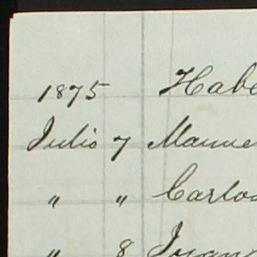 1875 Habe
Julio 7 Manue
" " Carlos
" 8